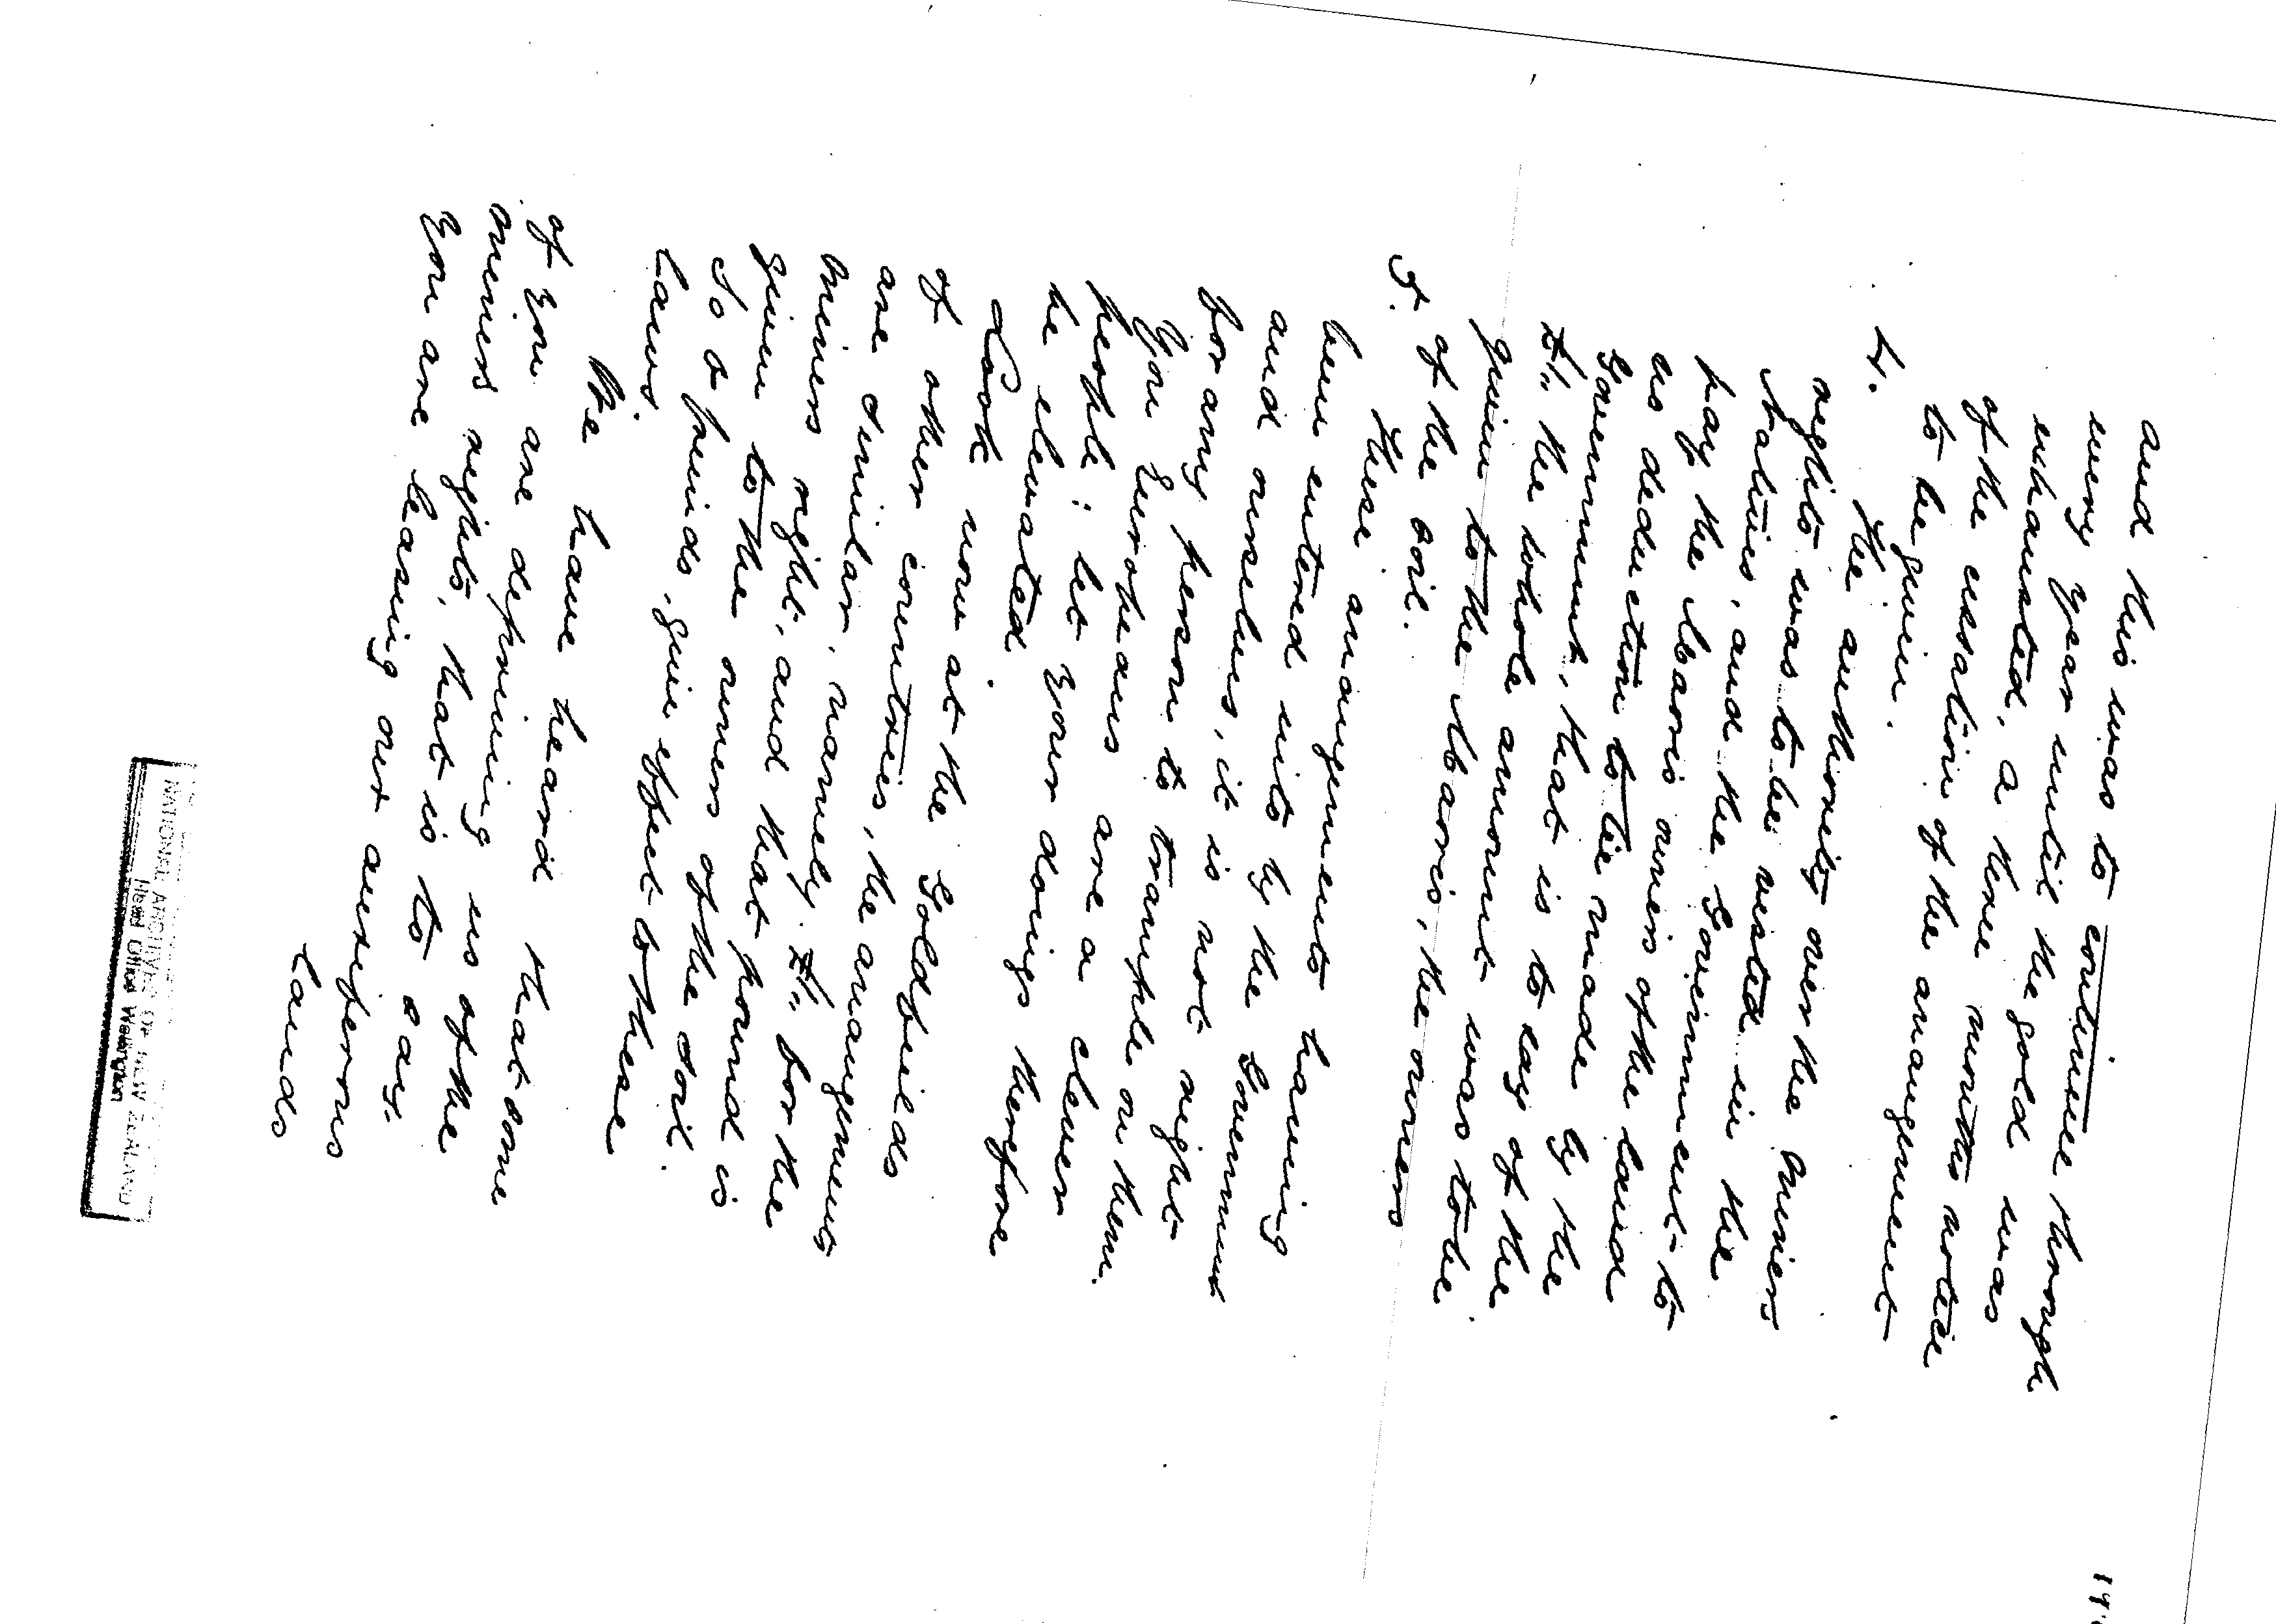 and this was to continue through
every year until the gold was
exhausted, a three months notice
of the cessation of the arrangement
to be given.
4. The authority over the miners
rights was to be vested in the
Natives, and the Government to
pay the Maoris owners of the land
no deduction to be made by the
Government, that is to say of the
£1. the whole amount was to be
given to the Maoris, the owners
5. of the soil.
These arrangements having
been entered into by the Government
and ourselves, it is not right
for any person to trample on them.
You Europeans are a clever
people; let your doings therefore
be elevated.
Look now at the Goldfields
of other countries, the arrangements
are similar, namely £1. for the
miners right, and that pound is
given to the owners of the soil.
So o friends, give effect to these
laws.
We have heard that some
of you are depriving us of the
miners rights, that is to say.
You are leasing our auriferous
lands
NATIONAL ARCHIVES OF NEW ZEALAND
Head Office Wellington